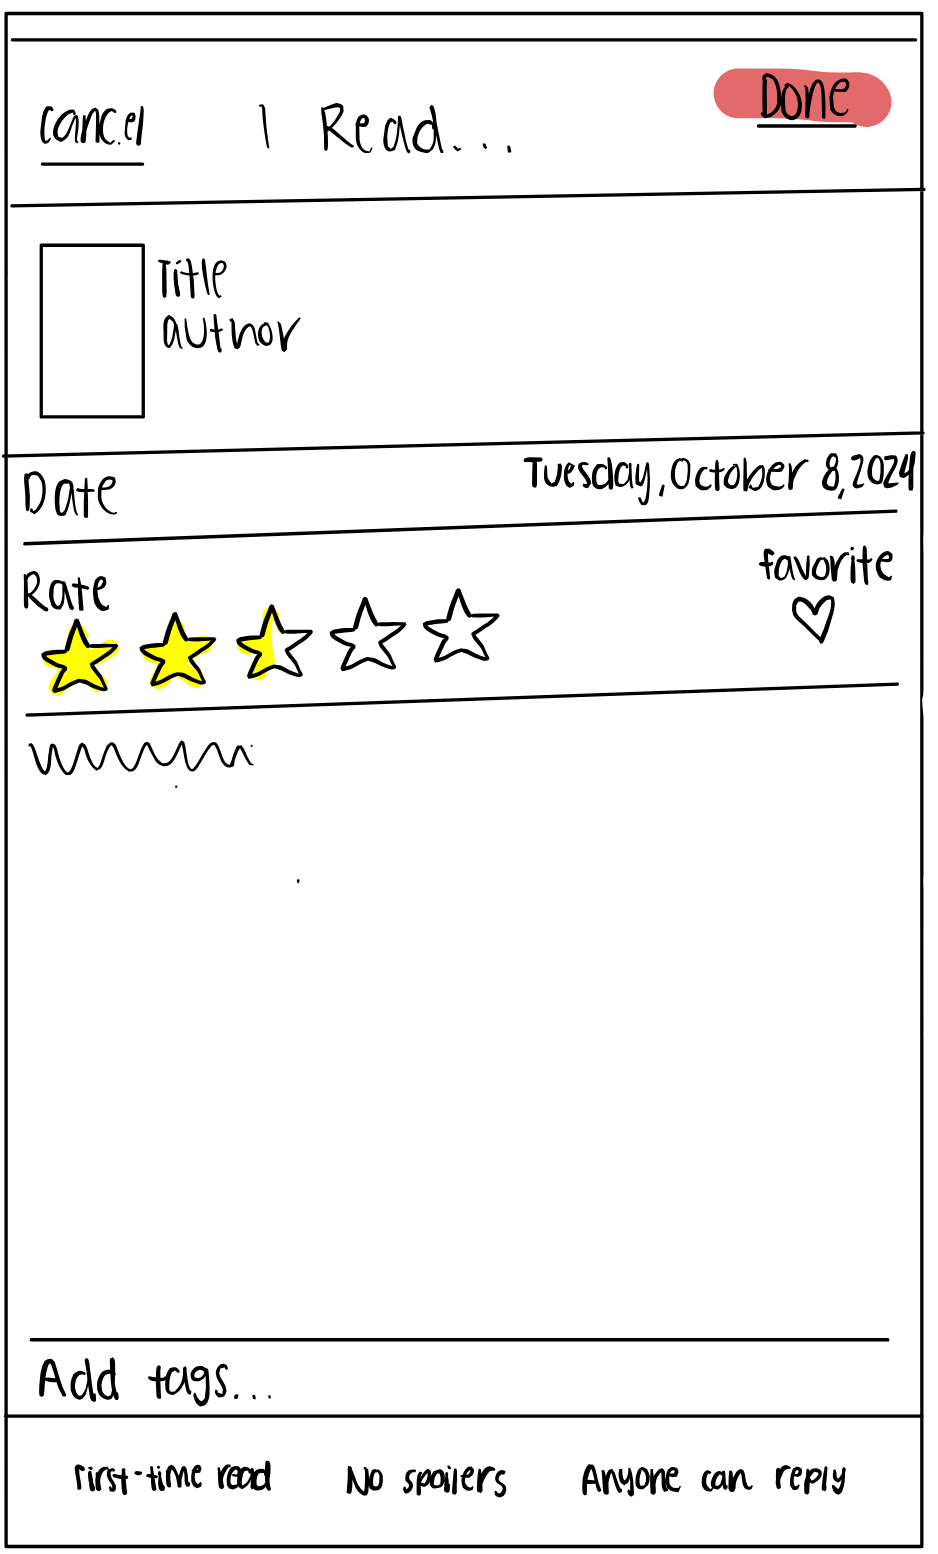 Cancel I Read... Done
Title
author
Date Tuesday, October 8, 2024
Rate favorite
Add tags...
First-time read No spoilers Anyone can reply